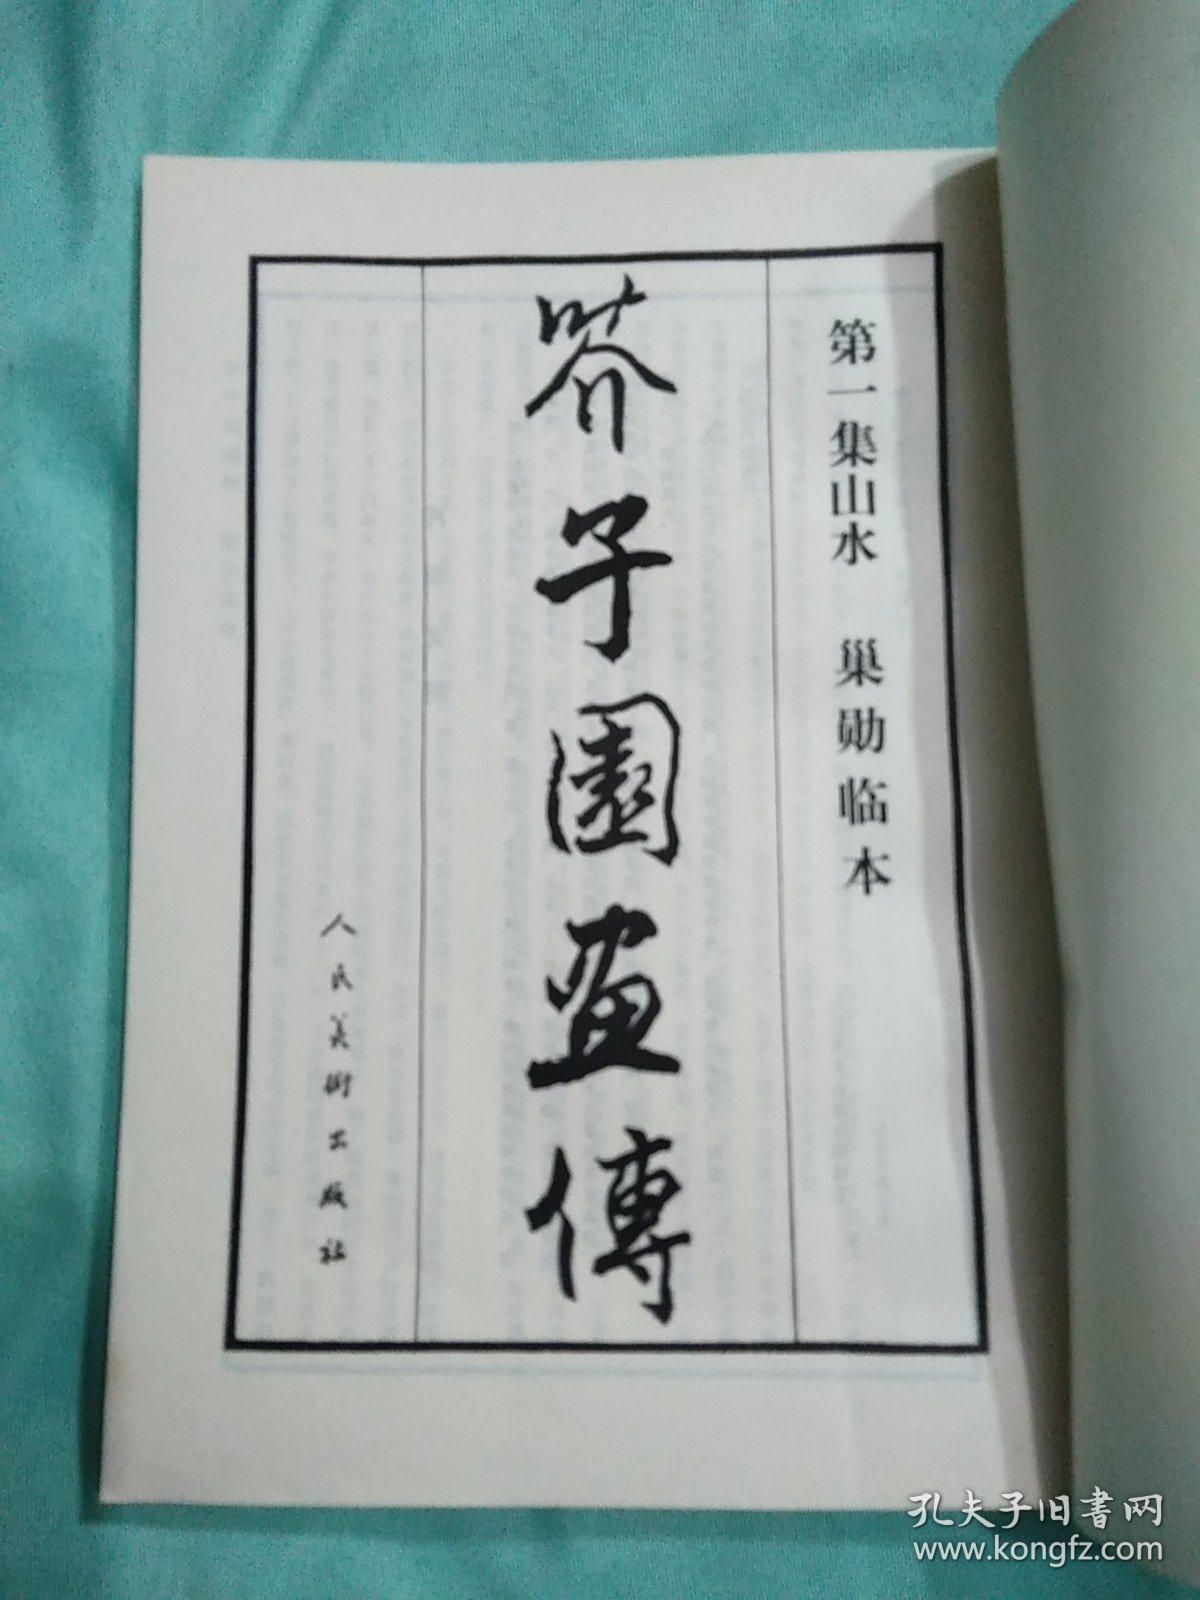 第一集山水 巢勋临本
芥子園画傳
人民美術出版社
孔夫子旧書网
www.kongfz.com